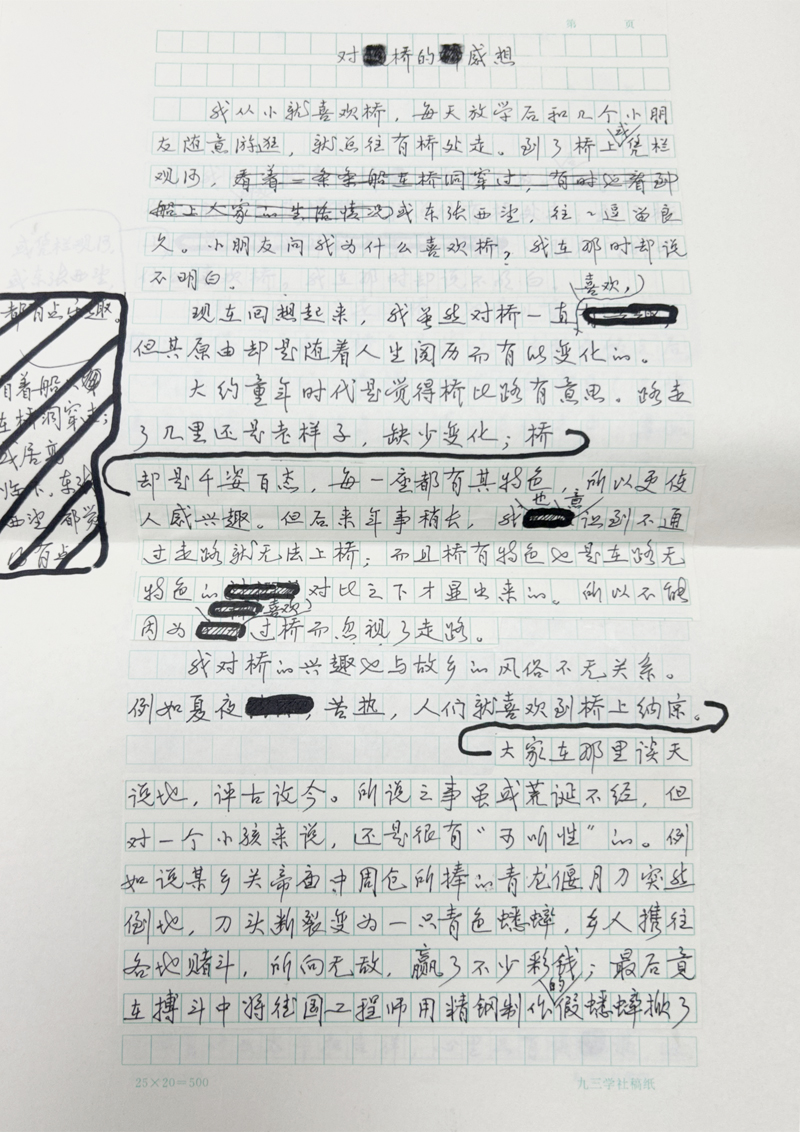 第 页
对桥的感想
我从小就喜欢桥，每天放学后和几个小朋
友随意游逛，就总往有桥处走。到了桥上或凭栏
观河，看着一条条船在桥洞穿过，有时也看到
船上人家的生活情况或东张西望，往往逗留良
久。小朋友问我为什么喜欢桥？我在那时却说
不明白。
喜欢，
现在回想起来，我虽然对桥一直
但其原由却是随着人生阅历而有以变化的。
大约童年时代是觉得桥比路有意思。路走
了几里还是老样子，缺少变化；桥
却是千姿百态，每一座都有其特色，所以更使
人感兴趣。但后来年事稍长，我也意识到不通
过走路就无法上桥；而且桥有特色也是在路无
特色的对比之下才显出来的。所以不能
因为喜欢过桥而忽视了走路。
我对桥的兴趣也与故乡的风俗不无关系。
例如夏夜，苦热，人们就喜欢到桥上纳凉。
大家在那里谈天
说地，评古议今。所说之事虽或荒诞不经，但
对一个小孩来说，还是很有“可听性”的。例
如说某乡关帝庙中周仓所捧的青龙偃月刀突然
倒地，刀头断裂变为一只青色蟋蟀，乡人携往
各地赌斗，所向无敌，赢了不少彩钱；最后竟
在搏斗中将德国工程师用精钢制作的假蟋蟀掀了
都有点
看着船
在桥洞穿过；
或居高
临下，东张
西望，都觉
有点
25×20=500
九三学社稿纸